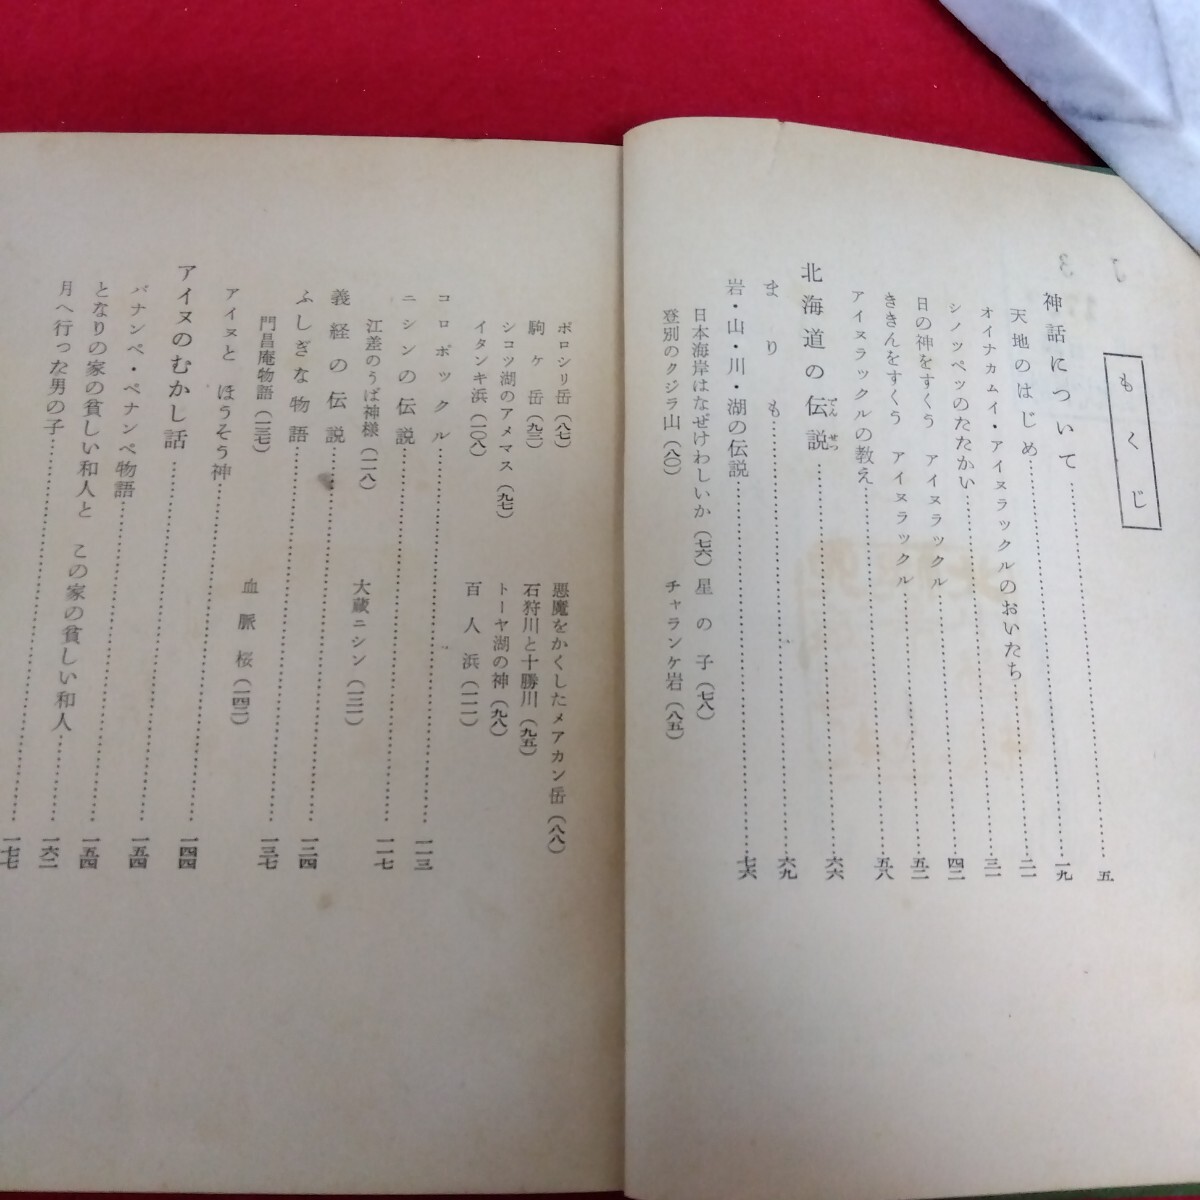 もくじ
神話について……五
天地のはじめ……一九
オイナカムイ・アイヌラックルのおいたち……二一
シノツペッのたたかい……三一
日の神をすくう アイヌラックル……四二
ききんをすくう アイヌラックル……五二
アイヌラックルの教え……五八
北海道の伝説……六六
でんせつ
まりも……六九
岩・山・川・湖の伝説……七六
日本海岸はなぜけわしいか(七六) 星の子(七八)
登別のクジラ山(八〇) チャランケ岩(八五)
ポロシリ岳(八七) 悪魔をかくしたメアカン岳(八八)
駒ケ岳(九三) 石狩川と十勝川(九五)
シコツ湖のアメマス(九七) トーヤ湖の神(九八)
イタンキ浜(一〇八) 百人浜(一一一)
コロボックル……一一三
ニシンの伝説……一一七
江差のうば神様(一一八) 大蔵ニシン(一二一)
義経の伝説……一二四
ふしぎな物語……一三七
門昌庵物語(一三七) 血脈桜(一四二)
アイヌと ほうそう神……一四四
アイヌのむかし話……一五四
パナンペ・ペナンペ物語……一五四
となりの家の貧しい和人と この家の貧しい和人……一六二
月へ行った男の子……一七七